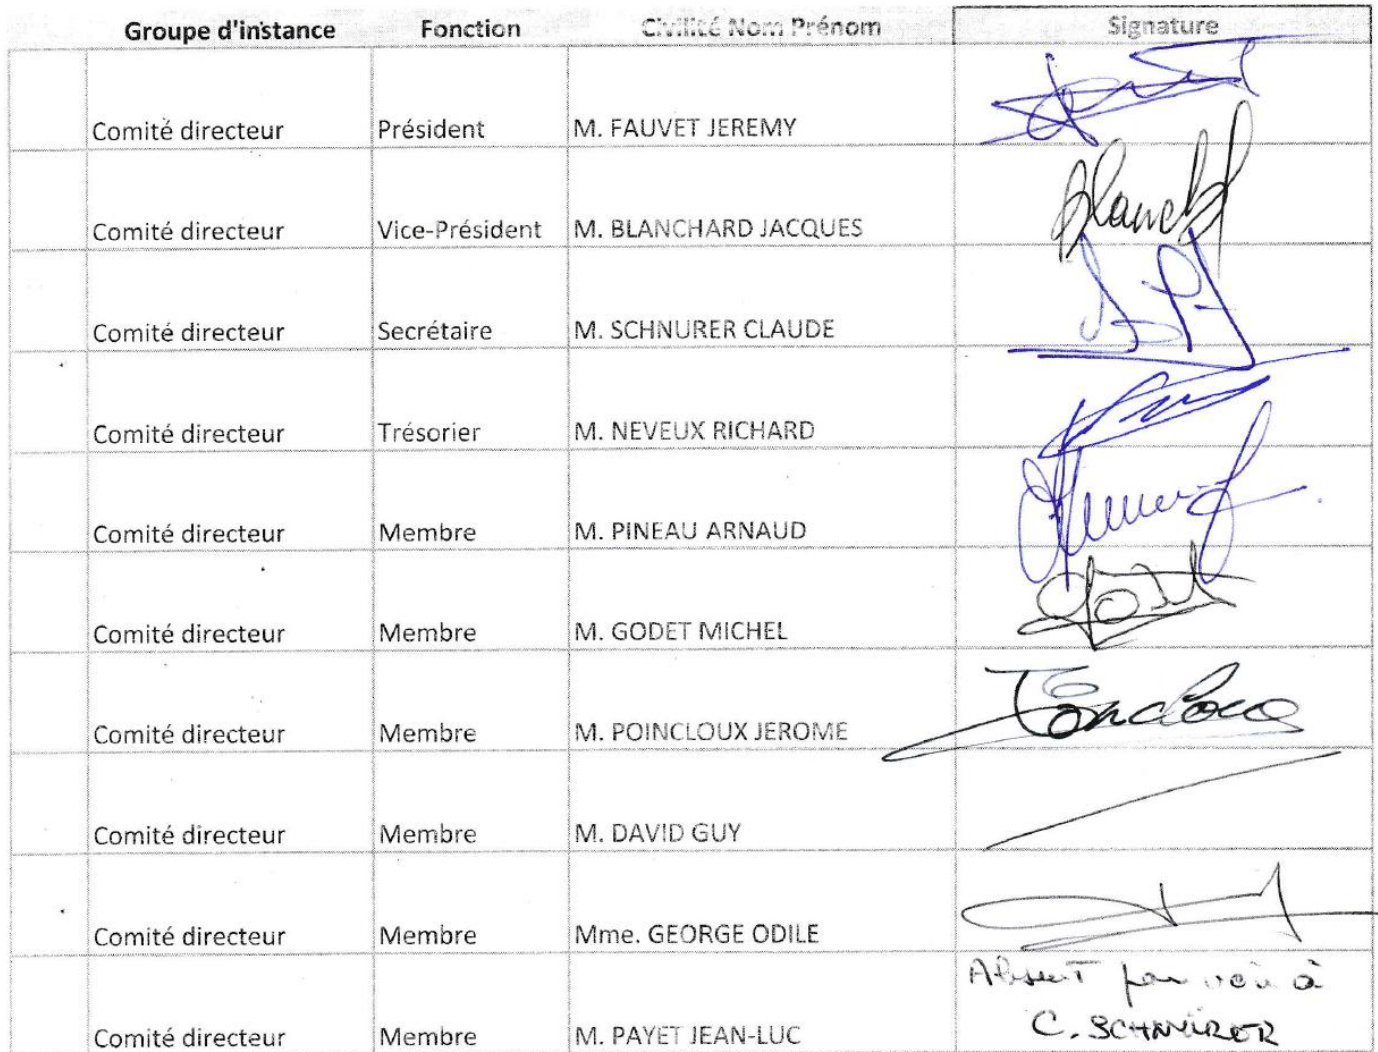 Groupe d'instance Fonction Civilité Nom Prénom Signature
Comité directeur Président M. FAUVET JEREMY
Comité directeur Vice-Président M. BLANCHARD JACQUES
Comité directeur Secrétaire M. SCHNURER CLAUDE
Comité directeur Trésorier M. NEVEUX RICHARD
Comité directeur Membre M. PINEAU ARNAUD
Comité directeur Membre M. GODET MICHEL
Comité directeur Membre M. POINCLOUX JEROME
Comité directeur Membre M. DAVID GUY
Comité directeur Membre Mme. GEORGE ODILE
Absent
Comité directeur Membre M. PAYET JEAN-LUC C. SCHNURER